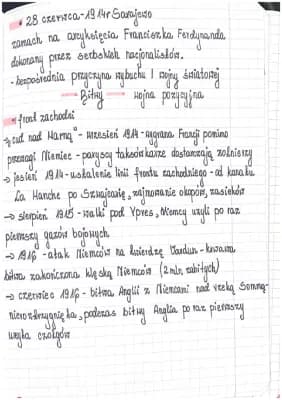 • 28 czerwca-1914r Sarajewo
zamach na arcyksięcia Franciszka Ferdynanda,
dokonany przez serbskich nacjonalistów.
- bezpośrednia przyczyna wybuchu I wojny światowej
Bitwy wojna pozycyjna
• front zachodni
→ „cud nad Marną" - wrzesień 1914 - wygrana Francji pomimo
przewagi Niemiec - paryscy taksówkarze dostarczają żołnierzy
→ jesień 1914 - ustalenie linii frontu zachodniego - od kanału
La Manche po Szwajcarię, zajmowanie okopów, zasieków
→ sierpień 1915 - walki pod Ypres, Niemcy użyli po raz
pierwszy gazów bojowych
→ 1916 - atak Niemców na twierdzę Verdun - krwawa
bitwa zakończona klęską Niemców (2 mln. zabitych)
→ czerwiec 1916 - bitwa Anglii z Niemcami nad rzeką Sommą -
nierozstrzygnięta, podczas bitwy Anglia po raz pierwszy
użyła czołgów